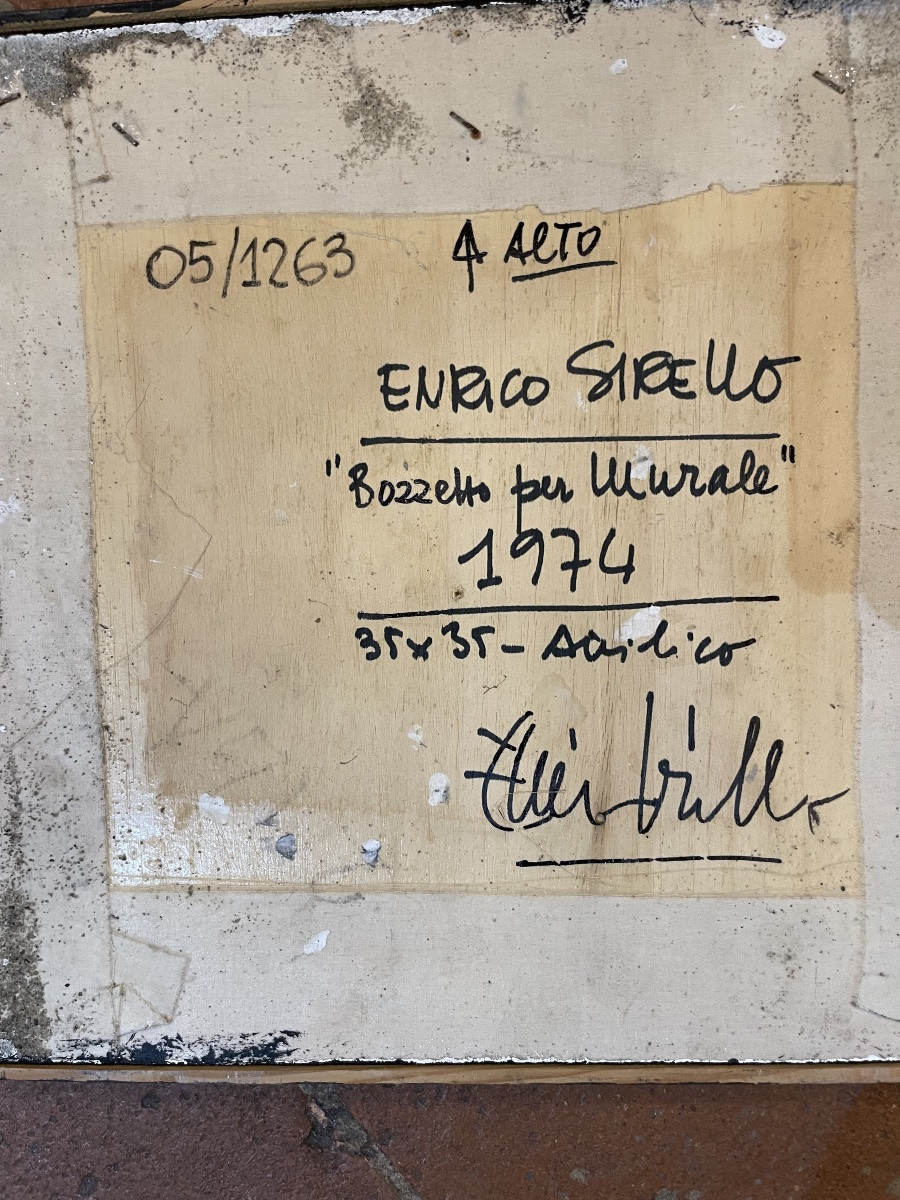 05/1263 ↑ ALTO
ENRICO SIRELLO
"Bozzetto per Murale"
1974
35x35 - Acrilico
Enrico Sirello